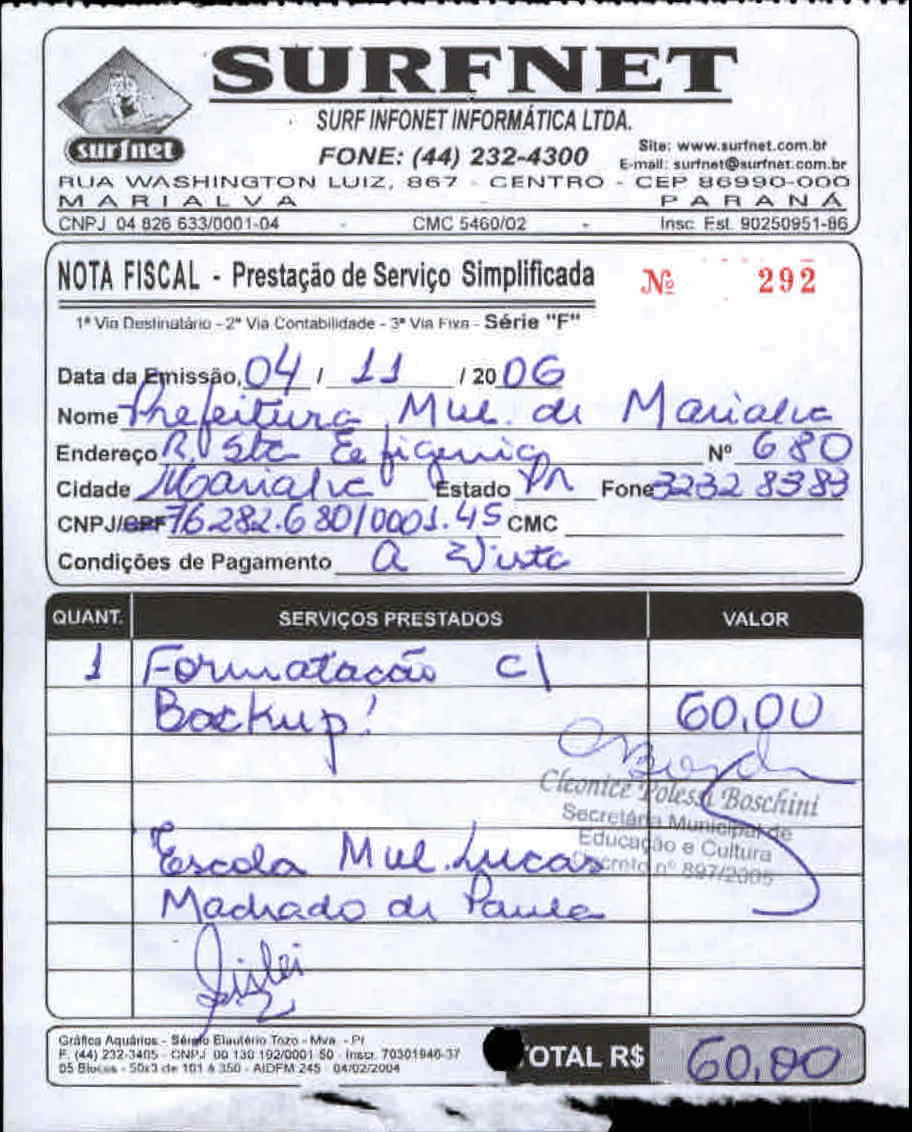 SURFNET
surfnet
SURF INFONET INFORMÁTICA LTDA.
FONE: (44) 232-4300
Site: www.surfnet.com.br
E-mail: surfnet@surfnet.com.br
RUA WASHINGTON LUIZ, 867 - CENTRO - CEP 86990-000
MARIALVA PARANÁ
CNPJ 04 826 633/0001-04 - CMC 5460/02 - Insc. Est. 90250951-86
NOTA FISCAL - Prestação de Serviço Simplificada Nº 292
1ª Via Destinatário - 2ª Via Contabilidade - 3ª Via Fixa - Série "F"
Data da Emissão, 04 / 11 / 2006
Nome Prefeitura Mul. de Marialva
Endereço R. Sta Eefigenia Nº 680
Cidade Marialva Estado PR Fone 3232 8383
CNPJ/CPF 76.282.680/0001.45 CMC
Condições de Pagamento A Vista
QUANT. SERVIÇOS PRESTADOS VALOR
1 Formatacão c/
Backup! 60,00
Cleonice Polessi Boschini
Secretária Municipal de
Educação e Cultura
Decreto nº 897/2005
Escola Mul. Lucas
Machado de Paula
Gráfica Aquários - Sérgio Elautério Tozo - Mva. - Pr
F. (44) 232-3405 - CNPJ 00 130 192/0001 50 - Inscr. 70301946-37
05 Blocos - 50x3 de 101 à 350 - AIDFM 245 04/02/2004
OTAL R$ 60,00